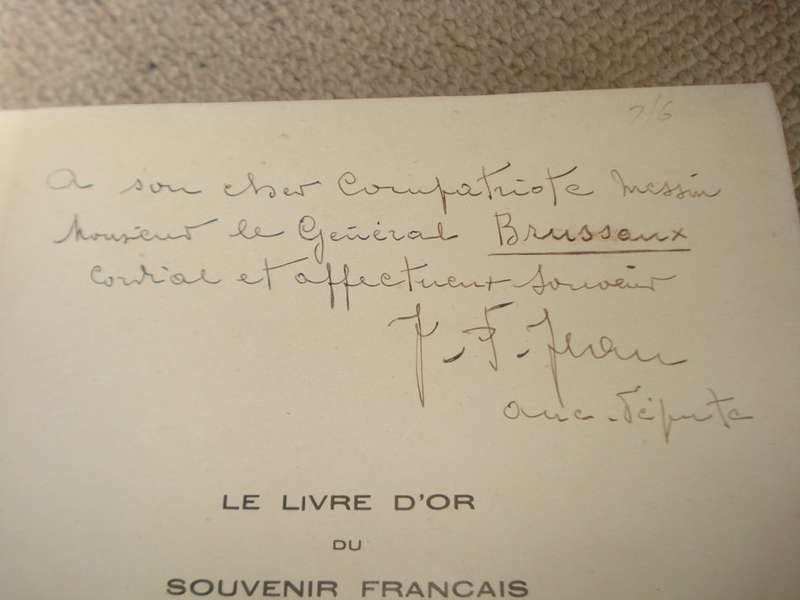 7/6
A son cher Compatriote Messin
Monsieur le Général Brusseaux
Cordial et affectueux souvenir
J. P. Jean
anc. député
LE LIVRE D'OR
DU
SOUVENIR FRANCAIS